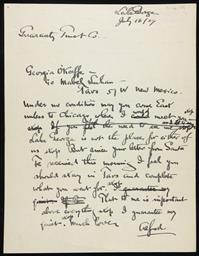 Lake George
July 10/29
Guaranty Trust Co.
Georgia O'Keeffe
c/o Mabel Luhan
Taos 57 W New Mexico.
Under no condition may you come East
unless to Chicago when I could meet you stop
stop If you feel the need to see me
Lake George is not the place for either of
us stop But since your letter from Santa
Fe received this morning I feel you
should stay in Taos and complete
what you went for stop
That to me is important
above everything stop I guarantee my
quiet. Much Love
Alfred